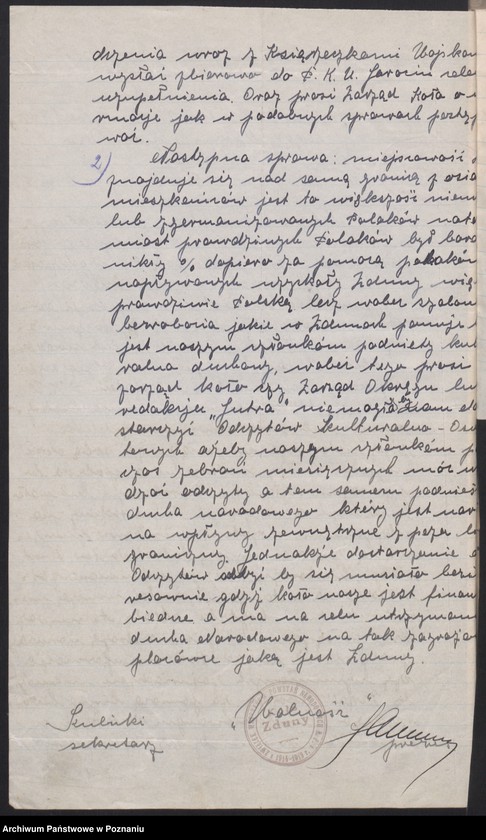 dzenia wraz z Książeczkami Wojskow
wysłać zbiorowo do P.K.U. Jarocin cele
uzupełnienia. Oraz prosi Zarząd Koła o
rmacje jak w podobnych sprawach postęp
wać.
2) Następna sprawa: miejscowość
znajduje się nad samą granicą z osia
mieszkańców jest to większość niem
lub zgermanizowanych Polaków nato
miast prawdziwych Polaków był bard
nikły % dopiero za pomocą Polaków
napływowych uzyskały Zduny
prawdziwie Polską lecz wobec szalon
bezrobocia jakie w Zdunach panuje
jest naszym członkom podniety kul
ralna duchowy, wobec tego prosi
zarząd koła czy Zarząd Okręgu lu
redakcja "Jutra" niemogła by nam do
starczyć Odczytów Kulturalno - Oś
towych ażeby naszym członkom p
czas zebrań miesięcznych móc
dzać odczyty a tem samem podnieś
ducha narodowego który jest nar
na wpływy zewnętrzne z poza
granicznej Jednakże dostarczenie
Odczytów by się musiało bezi
resownie gdyż koło nasze jest finan
biedne a ma na celu utrzyman
ducha Narodowego na tak zagrożo
placówce jaką jest Zduny.
"Wolność"
sekretarz
prezes
Zduny
Archiwum Państwowe w Poznaniu